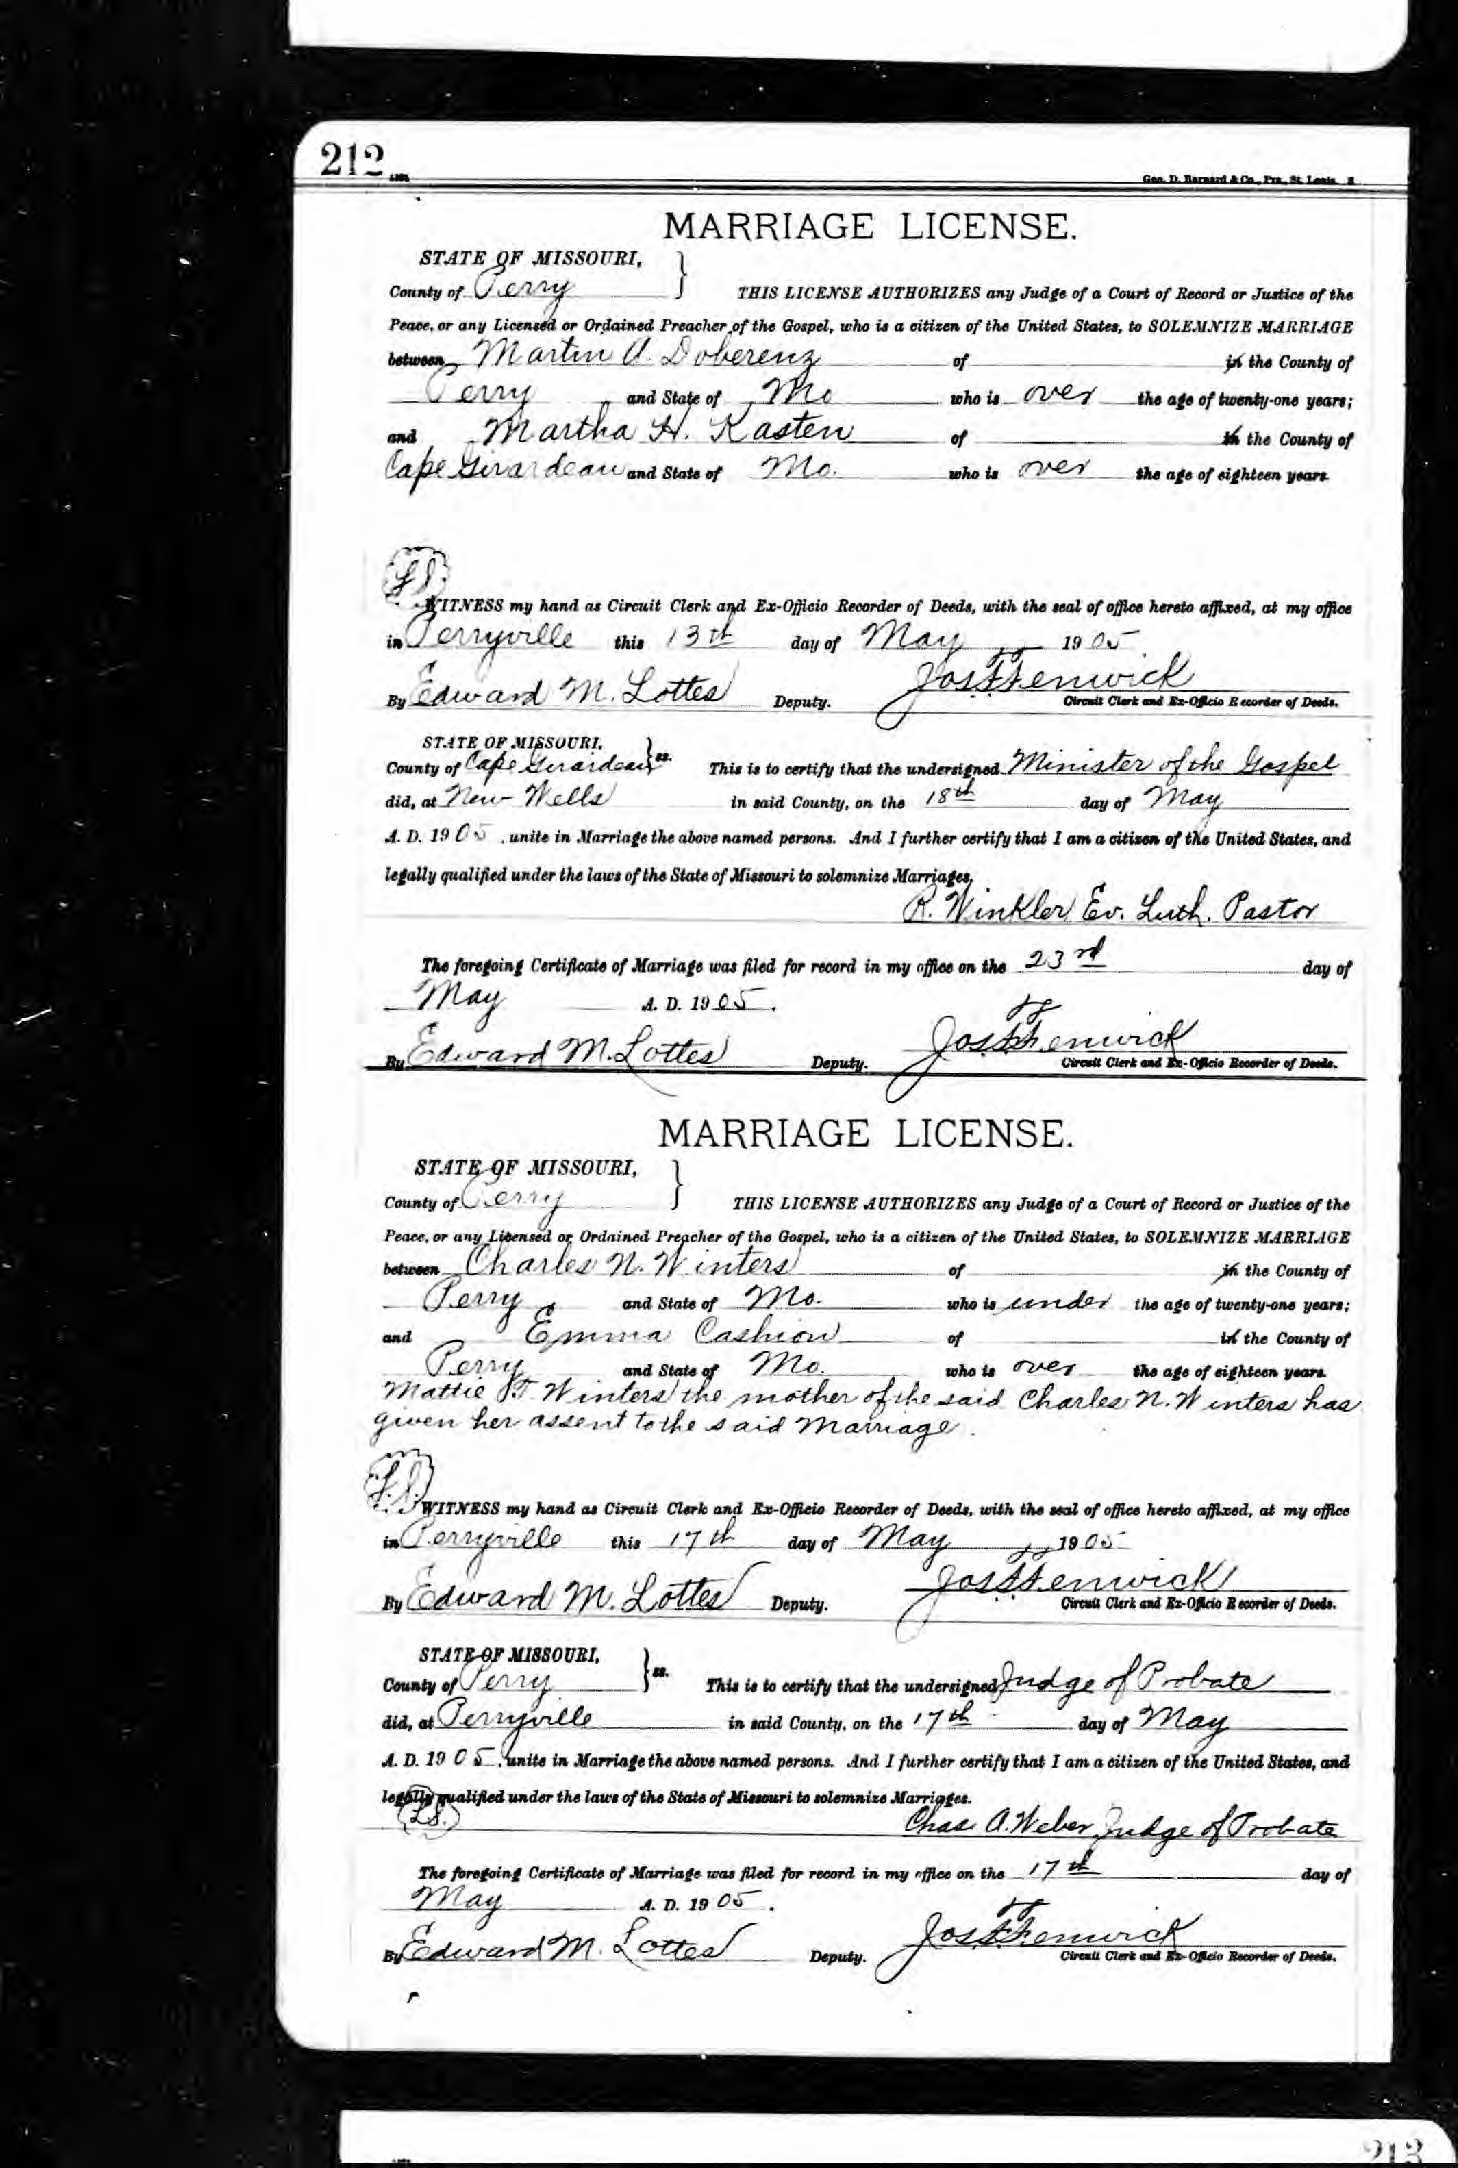 212
Geo. D. Barnard & Co., Prs., St. Louis.
MARRIAGE LICENSE.
STATE OF MISSOURI,
County of Perry } THIS LICENSE AUTHORIZES any Judge of a Court of Record or Justice of the
Peace, or any Licensed or Ordained Preacher of the Gospel, who is a citizen of the United States, to SOLEMNIZE MARRIAGE
between Martin A. Doberenz of in the County of
Perry and State of Mo who is over the age of twenty-one years;
and Martha H. Kasten of in the County of
Cape Girardeau and State of Mo. who is over the age of eighteen years.
L.S.
WITNESS my hand as Circuit Clerk and Ex-Officio Recorder of Deeds, with the seal of office hereto affixed, at my office
in Perryville this 13th day of May 1905
By Edward M. Lottes Deputy. Jos. F. Fenwick
Circuit Clerk and Ex-Officio Recorder of Deeds.
STATE OF MISSOURI,
County of Cape Girardeau } ss. This is to certify that the undersigned Minister of the Gospel
did, at New Wells in said County, on the 18th day of May
A. D. 1905, unite in Marriage the above named persons. And I further certify that I am a citizen of the United States, and
legally qualified under the laws of the State of Missouri to solemnize Marriages.
R. Winkler Ev. Luth. Pastor
The foregoing Certificate of Marriage was filed for record in my office on the 23rd day of
May A. D. 1905.
By Edward M. Lottes Deputy. Jos. F. Fenwick
Circuit Clerk and Ex-Officio Recorder of Deeds.
MARRIAGE LICENSE.
STATE OF MISSOURI,
County of Perry } THIS LICENSE AUTHORIZES any Judge of a Court of Record or Justice of the
Peace, or any Licensed or Ordained Preacher of the Gospel, who is a citizen of the United States, to SOLEMNIZE MARRIAGE
between Charles N. Winters of in the County of
Perry and State of Mo. who is under the age of twenty-one years;
and Emma Cashion of in the County of
Perry and State of Mo. who is over the age of eighteen years.
Mattie T. Winters the mother of the said Charles N. Winters has
given her assent to the said Marriage.
L.S.
WITNESS my hand as Circuit Clerk and Ex-Officio Recorder of Deeds, with the seal of office hereto affixed, at my office
in Perryville this 17th day of May 1905
By Edward M. Lottes Deputy. Jos. F. Fenwick
Circuit Clerk and Ex-Officio Recorder of Deeds.
STATE OF MISSOURI,
County of Perry } ss. This is to certify that the undersigned Judge of Probate
did, at Perryville in said County, on the 17th day of May
A. D. 1905, unite in Marriage the above named persons. And I further certify that I am a citizen of the United States, and
legally qualified under the laws of the State of Missouri to solemnize Marriages.
L.S. Chas. A. Weber Judge of Probate
The foregoing Certificate of Marriage was filed for record in my office on the 17th day of
May A. D. 1905.
By Edward M. Lottes Deputy. Jos. F. Fenwick
Circuit Clerk and Ex-Officio Recorder of Deeds.
213